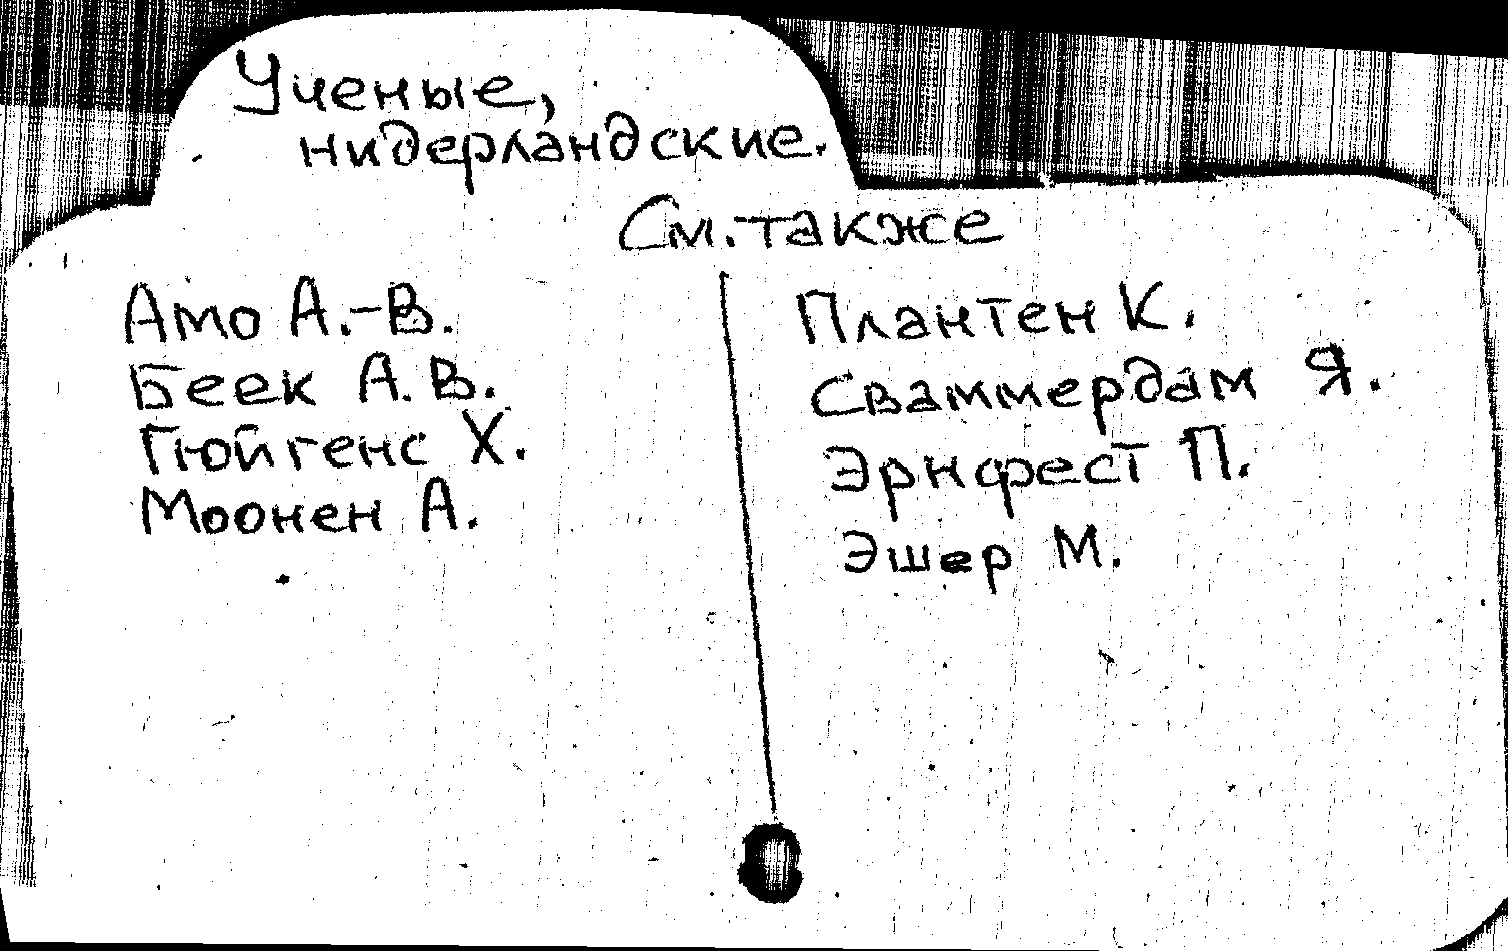 Ученые,
нидерландские.
См. также
Амо А.-В.
Беек А.В.
Гюйгенс Х.
Моонен А.
Плантен К.
Сваммердам Я.
Эрнфест П.
Эшер М.